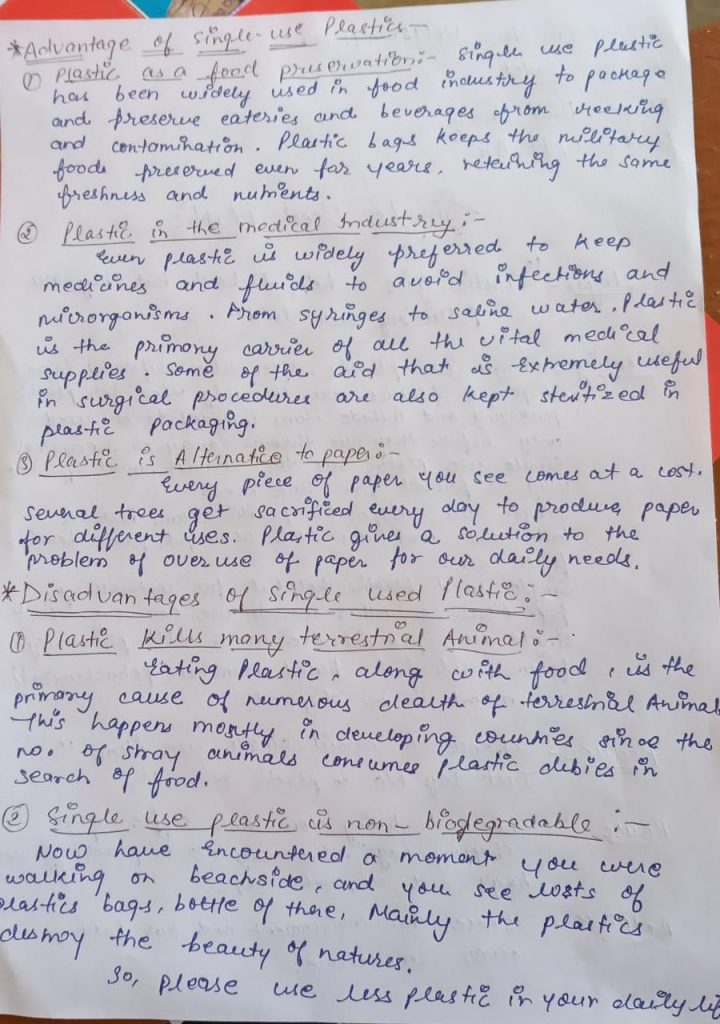 *Advantage of single-use Plastics:-
① Plastic as a food preservation:- Single use plastic
has been widely used in food industry to package
and preserve eateries and beverages from reeking
and contamination. Plastic bags keeps the military
foods preserved even for years, retaining the same
freshness and nutrients.
② Plastic in the medical Industry:-
Even plastic is widely preferred to keep
medicines and fluids to avoid infections and
microrganisms. From syringes to saline water. Plastic
is the primary carrier of all the vital medical
supplies. Some of the aid that is extremely useful
in surgical procedures are also kept sterilized in
plastic packaging.
③ Plastic is Alternatice to paper:-
Every piece of paper you see comes at a cost.
several trees get sacrificed every day to produce paper
for different uses. Plastic gives a solution to the
problem of over use of paper for our daily needs.
*Disadvantages of Single used Plastic:-
① Plastic kills many terrestrial Animal:-
Eating Plastic, along with food, is the
primary cause of numerous death of terrestrial Animal
This happens mostly in developing countries since the
no. of stray animals consumes plastic debies in
search of food.
② Single use plastic is non-biodegradable:-
Now have Encountered a moment you were
walking on beachside, and you see losts of
plastics bags, bottle of there, Mainly the plastics
destroy the beauty of natures.
So, please use less plastic in your daily lif